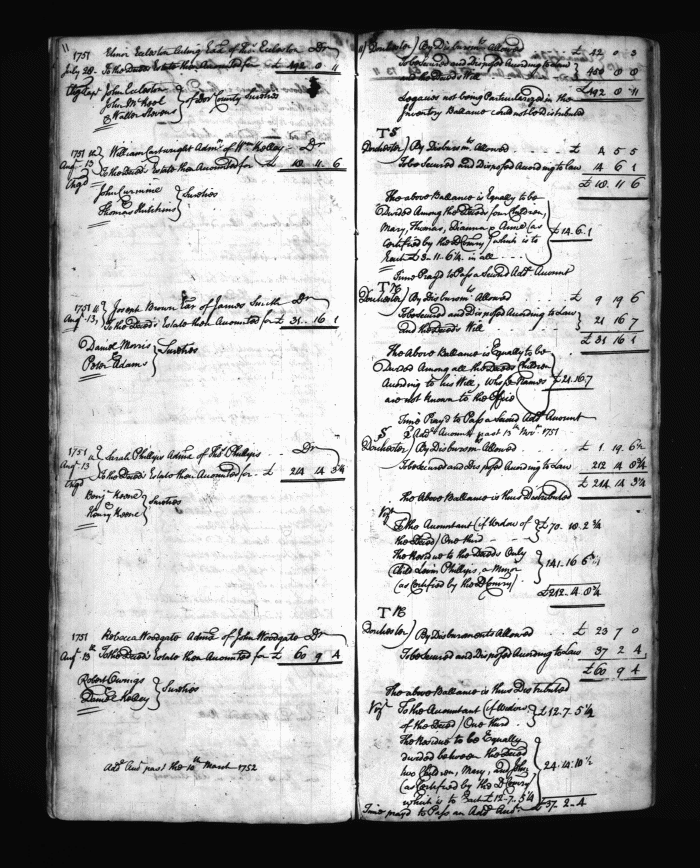 11
1751 Elinor Eccleston Acting Exx. of Thos. Eccleston Dr
July 20 To the Deceds Estate then Accounted for £ 492 0 11
John Eccleston
John McKeel } of Dor. County Sureties
& Walter Stevens
1751 William Cartwright Admr. of Wm Kelley Dr
Augt. 13 To the Deceds Estate then Accounted for £ 18 11 6
} Sureties
Thomas Hutchins
1751 Joseph Brown Exr of James Smith Dr
Augt. 13, To the Deceds Estate then Accounted for £ 31 16 1
Daniel Morris } Sureties
Peter Adams
1751 Sarah Phillips Admx of Thos. Phillips Dr
Augt 13 To the Deceds Estate then Accounted for £ 214 14 3¼
Benj. Keene } Sureties
Henry Keene
1751 Rebecca Woodgate Admx of John Woodgate Dr
Augt 13th To the Deceds Estate then Accounted for £ 60 9 4
Robert Owings } Sureties
Daniel Kelley
Addl Acct past the 10th March 1752
11 Dorchester) By Disbursmts Allowed £ 42 0 3
To be Secured and Disposed According to Law } 450 0 8
and the Deceds Will
£492 0 11
Legacies not being Particularized in the
Inventory Ballance could not be distributed
Dorchester) By Disbursmts Allowed £ 4 5 5
To be Secured and Disposed According to Law 14 6 1
£ 18 11 6
The above Ballance is Equally to be
Divided Among the Deceds four Children,
Mary, Thomas, Dianna & Anne (as } £14.6.1
Certified by the D Comry) which is to
Each £3-11-6¼ in all
Time Pray'd to Pass a Second Addl Account
Dorchester) By Disbursmts Allowed £ 9 19 6
To be Secured and Disposed According to Law } 21 16 7
and the Deceds Will
£ 31 16 1
The Above Ballance is Equally to be
Divided Among all the Deceds Children
According to his Will, Whose Names } £21.16.7
are not known to the Office
Time Pray'd to Pass a Second Addl Account
Addl Account past 13th Novr 1751
Dorchester) By Disbursmts Allowed £ 1 19 6½
To be Secured and Disposed According to Law 212 14 8¾
£ 214 14 3¼
The Above Ballance is thus Distributed
Vizt
To the Accountant (if Widow of } £70.18.2¾
the Deced) One third
The Residue to the Deceds Only
Child Levin Phillips, a Minor } 141.16.6
(as Certified by the D Comry)
Dorchester) By Disbursments Allowed £ 23 7 0
To be Secured and Disposed According to Law 37 2 4
£60 9 4
The above Ballance is thus Distributed
Vizt To the Accountant (if Widow } £12.7.5¼
of the Deced) One third
The Residue to be Equally
divided between the Deceds
two Children, Mary, and John } 24.14.10½
(as Certified by the D Comry
which is to Each £12.7.5¼
£37.2.4
Time prayd to Pass an Addl Acct.